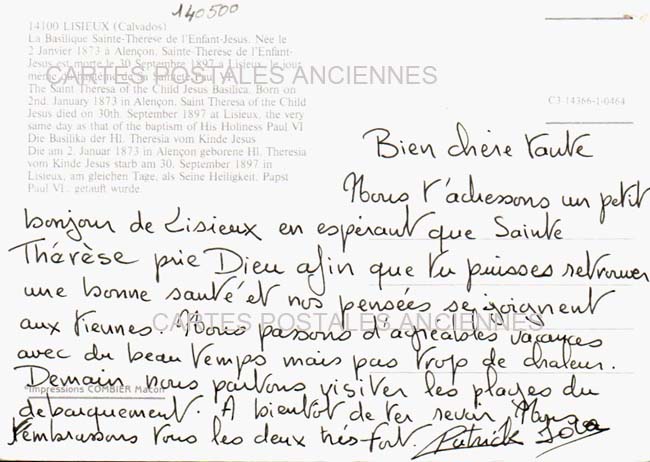 140500
14100 LISIEUX (Calvados)
La Basilique Sainte-Therese de l'Enfant-Jesus. Née le
2 Janvier 1873 à Alençon, Sainte-Therese de l'Enfant-
Jesus est morte le 30 Septembre 1897 à Lisieux, le jour
même du baptême de sa Sainteté Paul VI.
CARTES POSTALES ANCIENNES
The Saint Theresa of the Child Jesus Basilica. Born on
2nd. January 1873 in Alençon, Saint Theresa of the Child
Jesus died on 30th. September 1897 at Lisieux, the very
same day as that of the baptism of His Holiness Paul VI
Die Basilika der Hl. Theresia vom Kinde Jesus
Die am 2. Januar 1873 in Alençon geborene Hl. Theresia
vom Kinde Jesus starb am 30. September 1897 in
Lisieux, am gleichen Tage, als Seine Heiligkeit, Papst
Paul VI., getauft wurde.
C3-14366-1-0464
Bien chère tante
Nous t'adressons un petit
bonjour de Lisieux en espérant que Sainte
Thérèse prie Dieu afin que tu puisses retrouver
une bonne santé et nos pensées se joignent
aux tiennes. Nous passons d'agréables vacances
CARTES POSTALES ANCIENNES
avec du beau temps mais pas trop de chaleur.
Demain nous partons visiter les plages du
Impressions COMBIER Macon
debarquement. A bientôt de te revoir. Nous
t'embrassons tous les deux très fort. Patrick